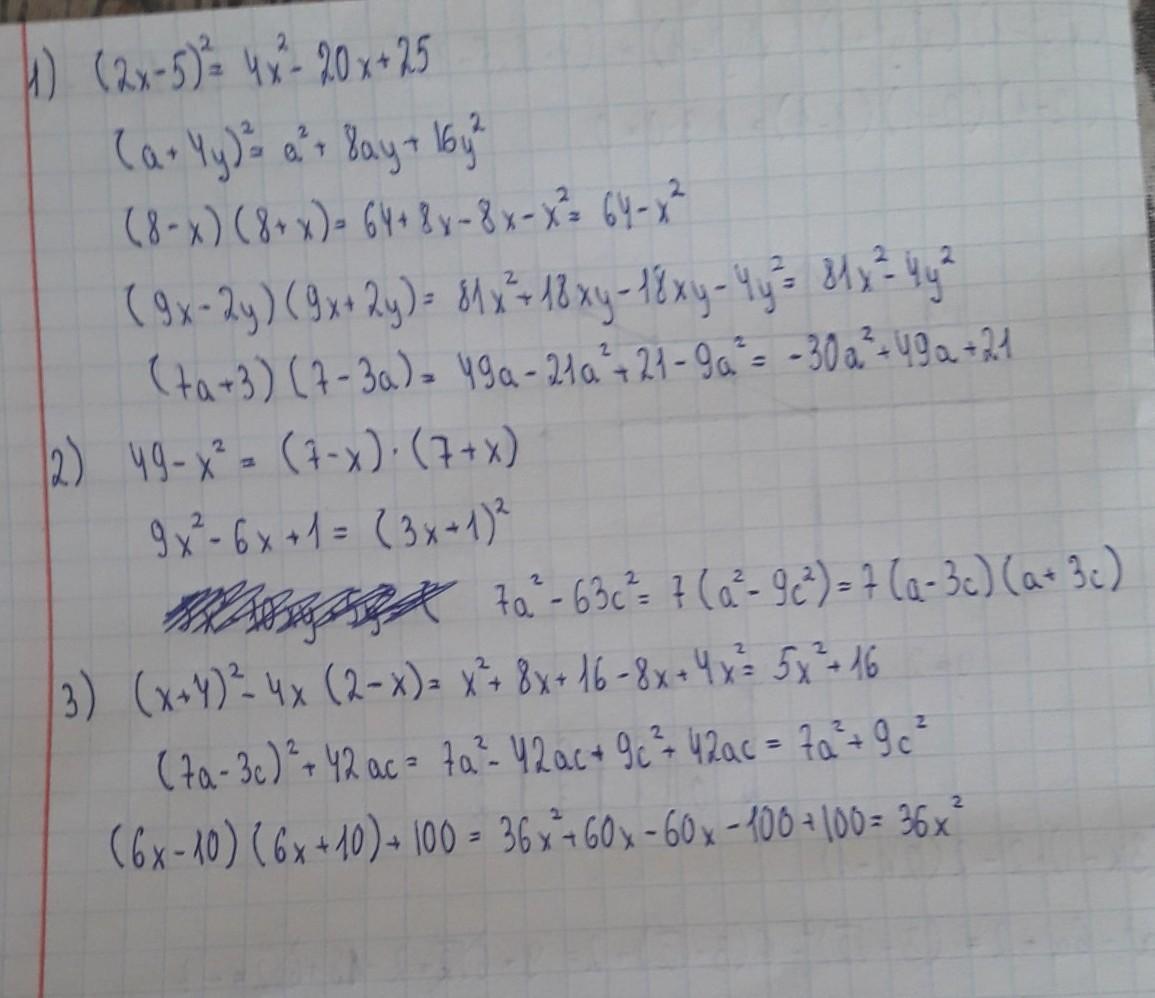 1) (2x-5)²= 4x²- 20x+25
(a+4y)²= a²+ 8ay+ 16y²
(8-x)(8+x)= 64+8x-8x-x²= 64-x²
(9x-2y)(9x+2y)= 81x²+18xy-18xy-4y²= 81x²-4y²
(7a+3)(7-3a)= 49a-21a²+21-9a²= -30a²+49a+21
2) 49-x²= (7-x)·(7+x)
9x²-6x+1= (3x+1)²
7a²-63c²= 7(a²-9c²)=7(a-3c)(a+3c)
3) (x+4)²-4x(2-x)= x²+8x+16-8x+4x²= 5x²+16
(7a-3c)²+42ac= 7a²-42ac+9c²+42ac= 7a²+9c²
(6x-10)(6x+10)+100= 36x²+60x-60x-100+100= 36x²